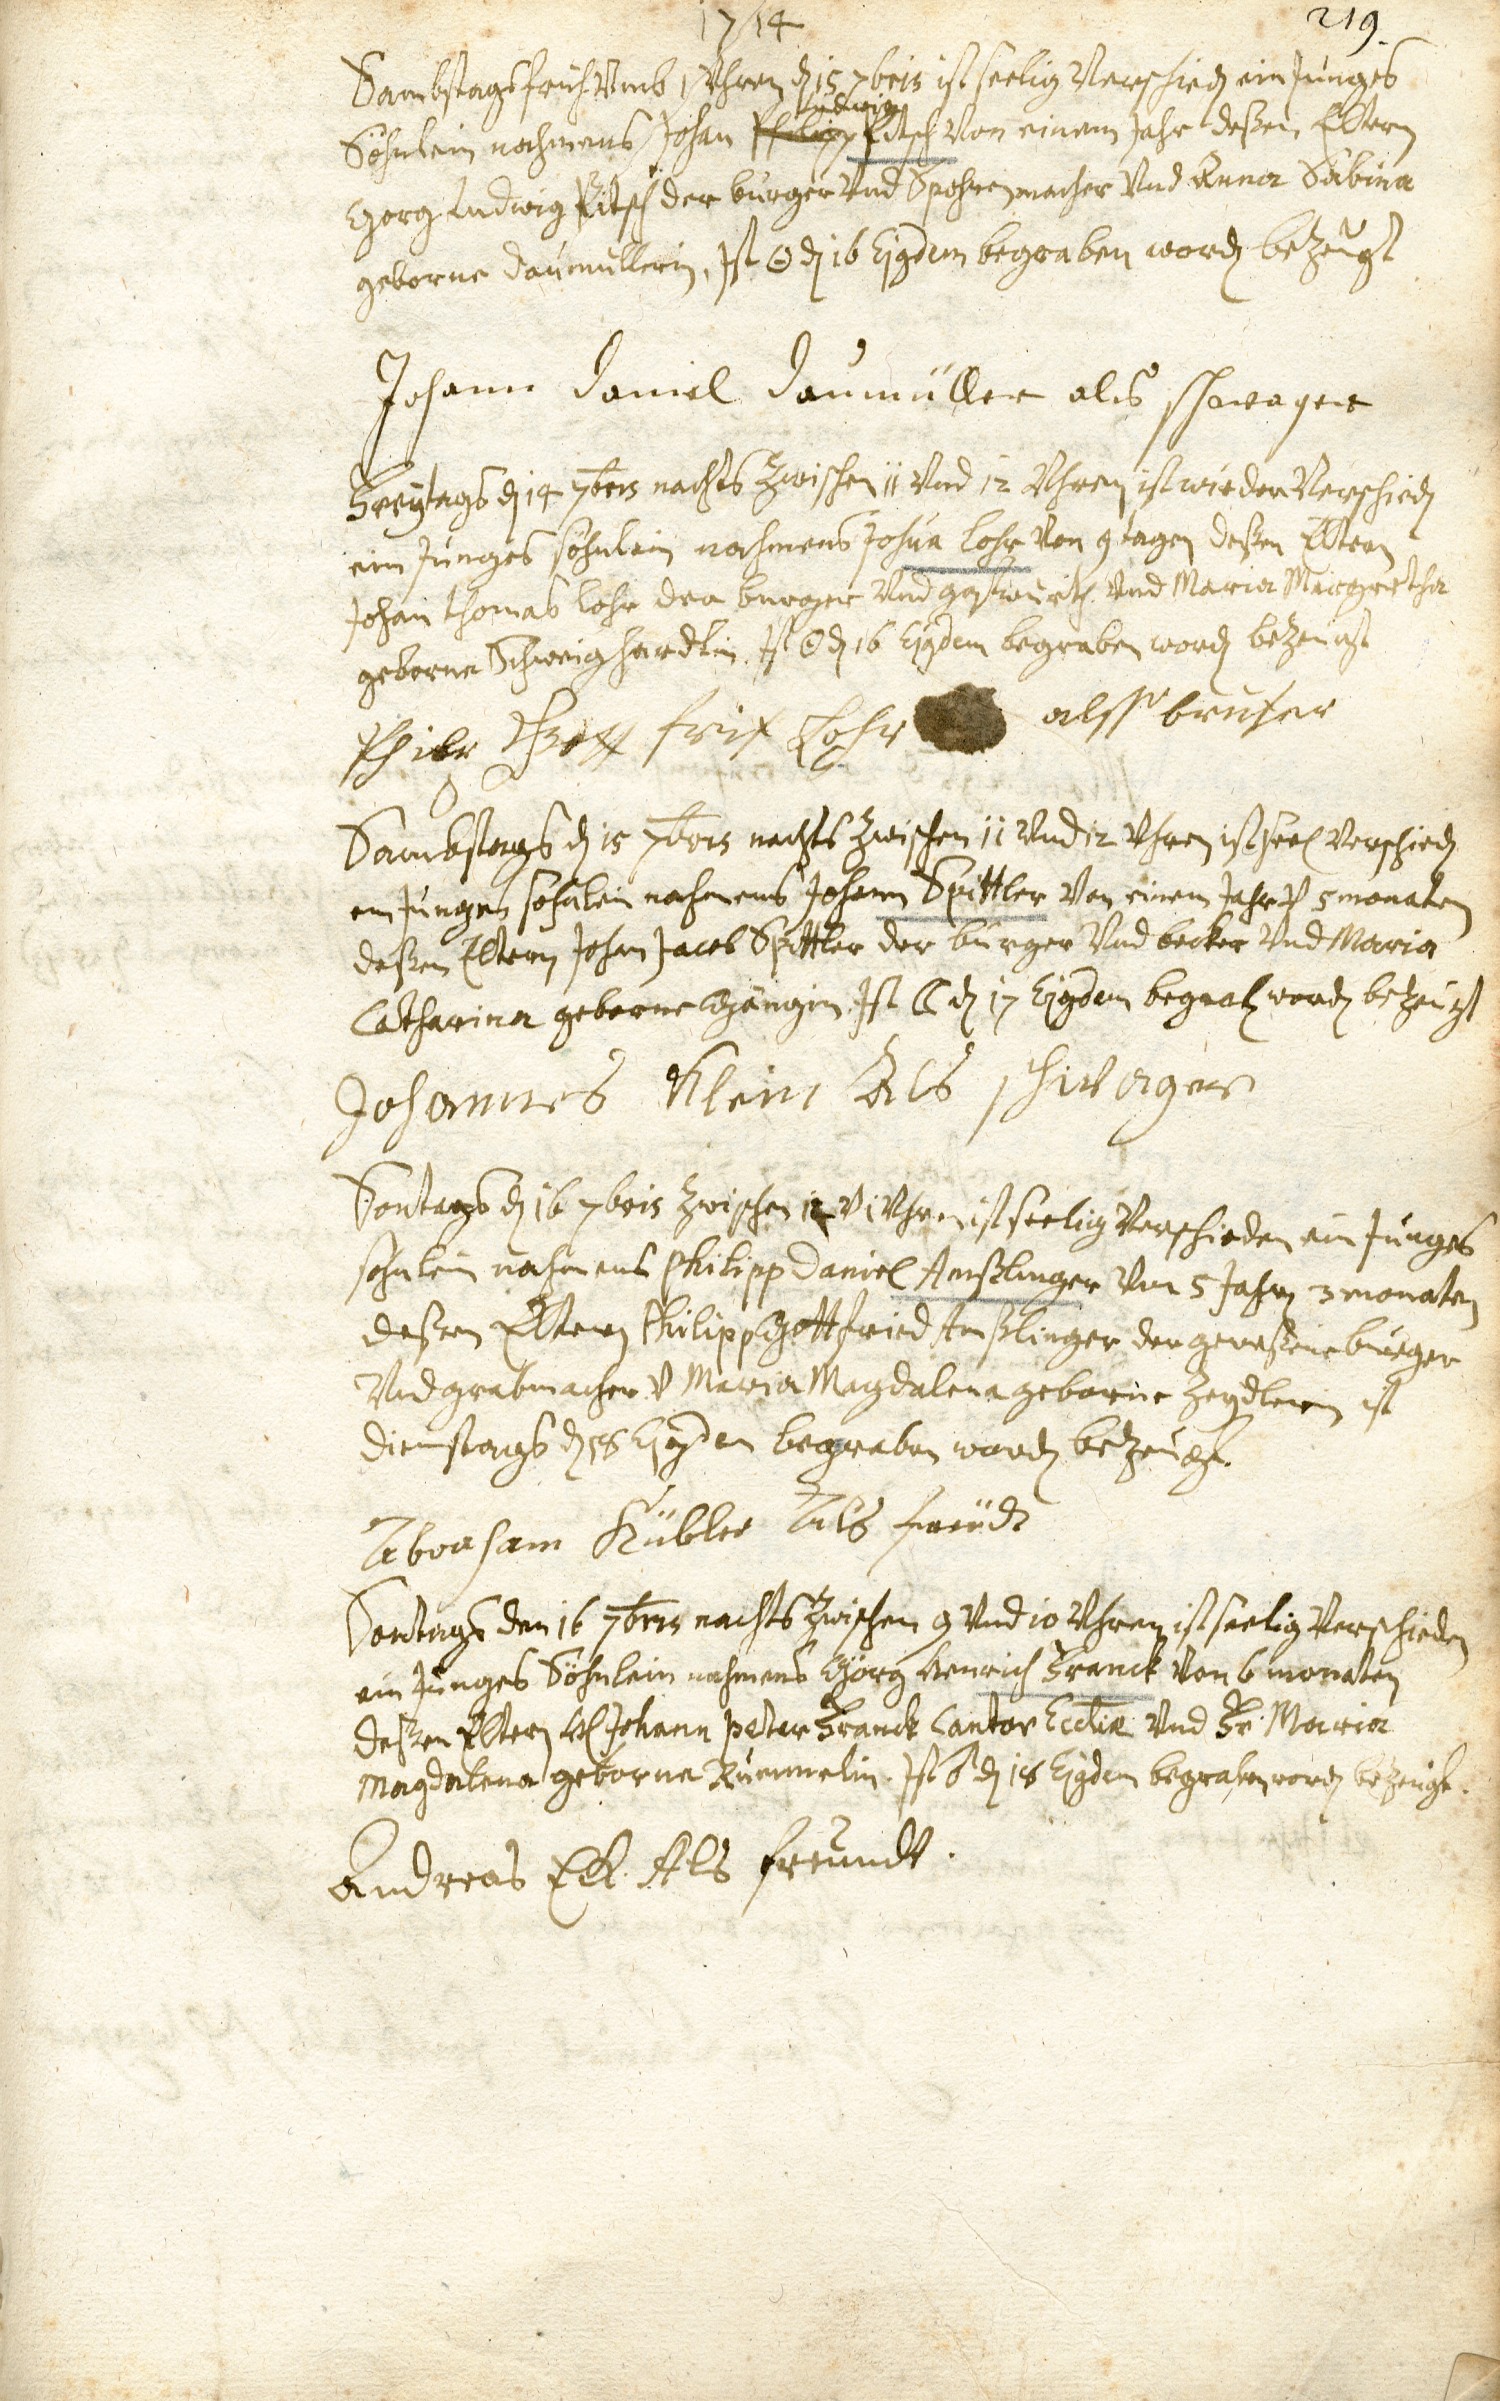 1714
219.
Sambstags früh Vmb 1 Vhren dē 15 7bris ist seelig Verschiedē ein Junges
Ludwig
Söhnlein nahmens Johan Philipp Pitsch Von einem Jahr deßen Eltern
Georg Ludwig Pitsch der burger Vnd Spohrenmacher Vnd Anna Sabina
geborne Daumüllerin, Ist ☉ dē 16 Ejqdem begraben wordē bezeugt
Johann Daniel Daumüller als schwager
Freytags dē 14 7bris nachts Zwischen 11 Vnd 12 Vhren ist wieder Verschiedē
ein Junges söhnlein nahmens Josua Lohr Von 9 tagen deßen Eltern
Johan thomas Lohr der burger Vnd gastwürth Vnd Maria Margretha
geborne Schweighardtin. Ist ☉ dē 16 Ejqdem begraben wordē bezeugt
Lohr alß bruder
Sambstags dē 15 7bris nachts Zwischen 11 Vnd 12 Vhren ist seel Verschiedē
ein Junges söhnlein nahmens Johann Spittler Von einem Jahr V 5 monaten
deßen Eltern Johan Jacob Spittler der burger Vnd becker Vnd Maria
Catharina geborne Ist ☾ dē 17 Ejqdem begrabē wordē bezeugt
Johannes Klein Als schwager
Sontags dē 16 7bris Zwischen 12 V 1 Vhren ist seelig Verschieden ein Junges
söhnlein nahmens Philipp Daniel Amßlinger Von 5 Jahrē 3 monaten
deßen Eltern Philipp Gottfried Amßlinger der geweßene burger
Vnd grabmacher V Maria Magdalena geborne Zeydlerin ist
Dienstags dē 18 Ejqdem begraben wordē bezeugt.
Abraham Kübler Als freündt
Sontags den 16 7bris nachts Zwischen 9 Vnd 10 Vhren ist seelig Verschieden
ein Junges Söhnlein nahmens Georg Henrich Franck Von 6 monaten
deßen Eltern H Johann Peter Franck Cantor Eccliæ Vnd Fr. Maria
Magdalena geborne Kümmelin. Ist ♂ dē 18 Ejqdem begraben wordē bezeugt.
Andreas Ell. Als freundt.